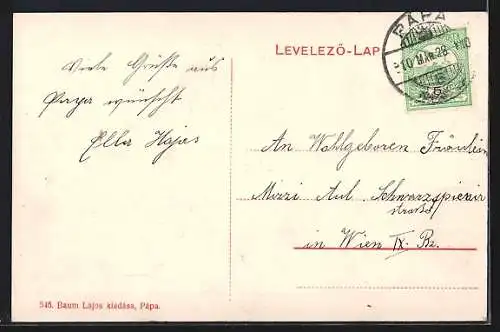 LEVELEZŐ-LAP
PÁPA
Viele Grüße aus
Papa wünscht
Ella Hajas
An Wohlgeboren Fräulein
Mizzi Aul Schwarzspanier
straße
in Wien IX. Bz.
545. Baum Lajos kiadása, Pápa.